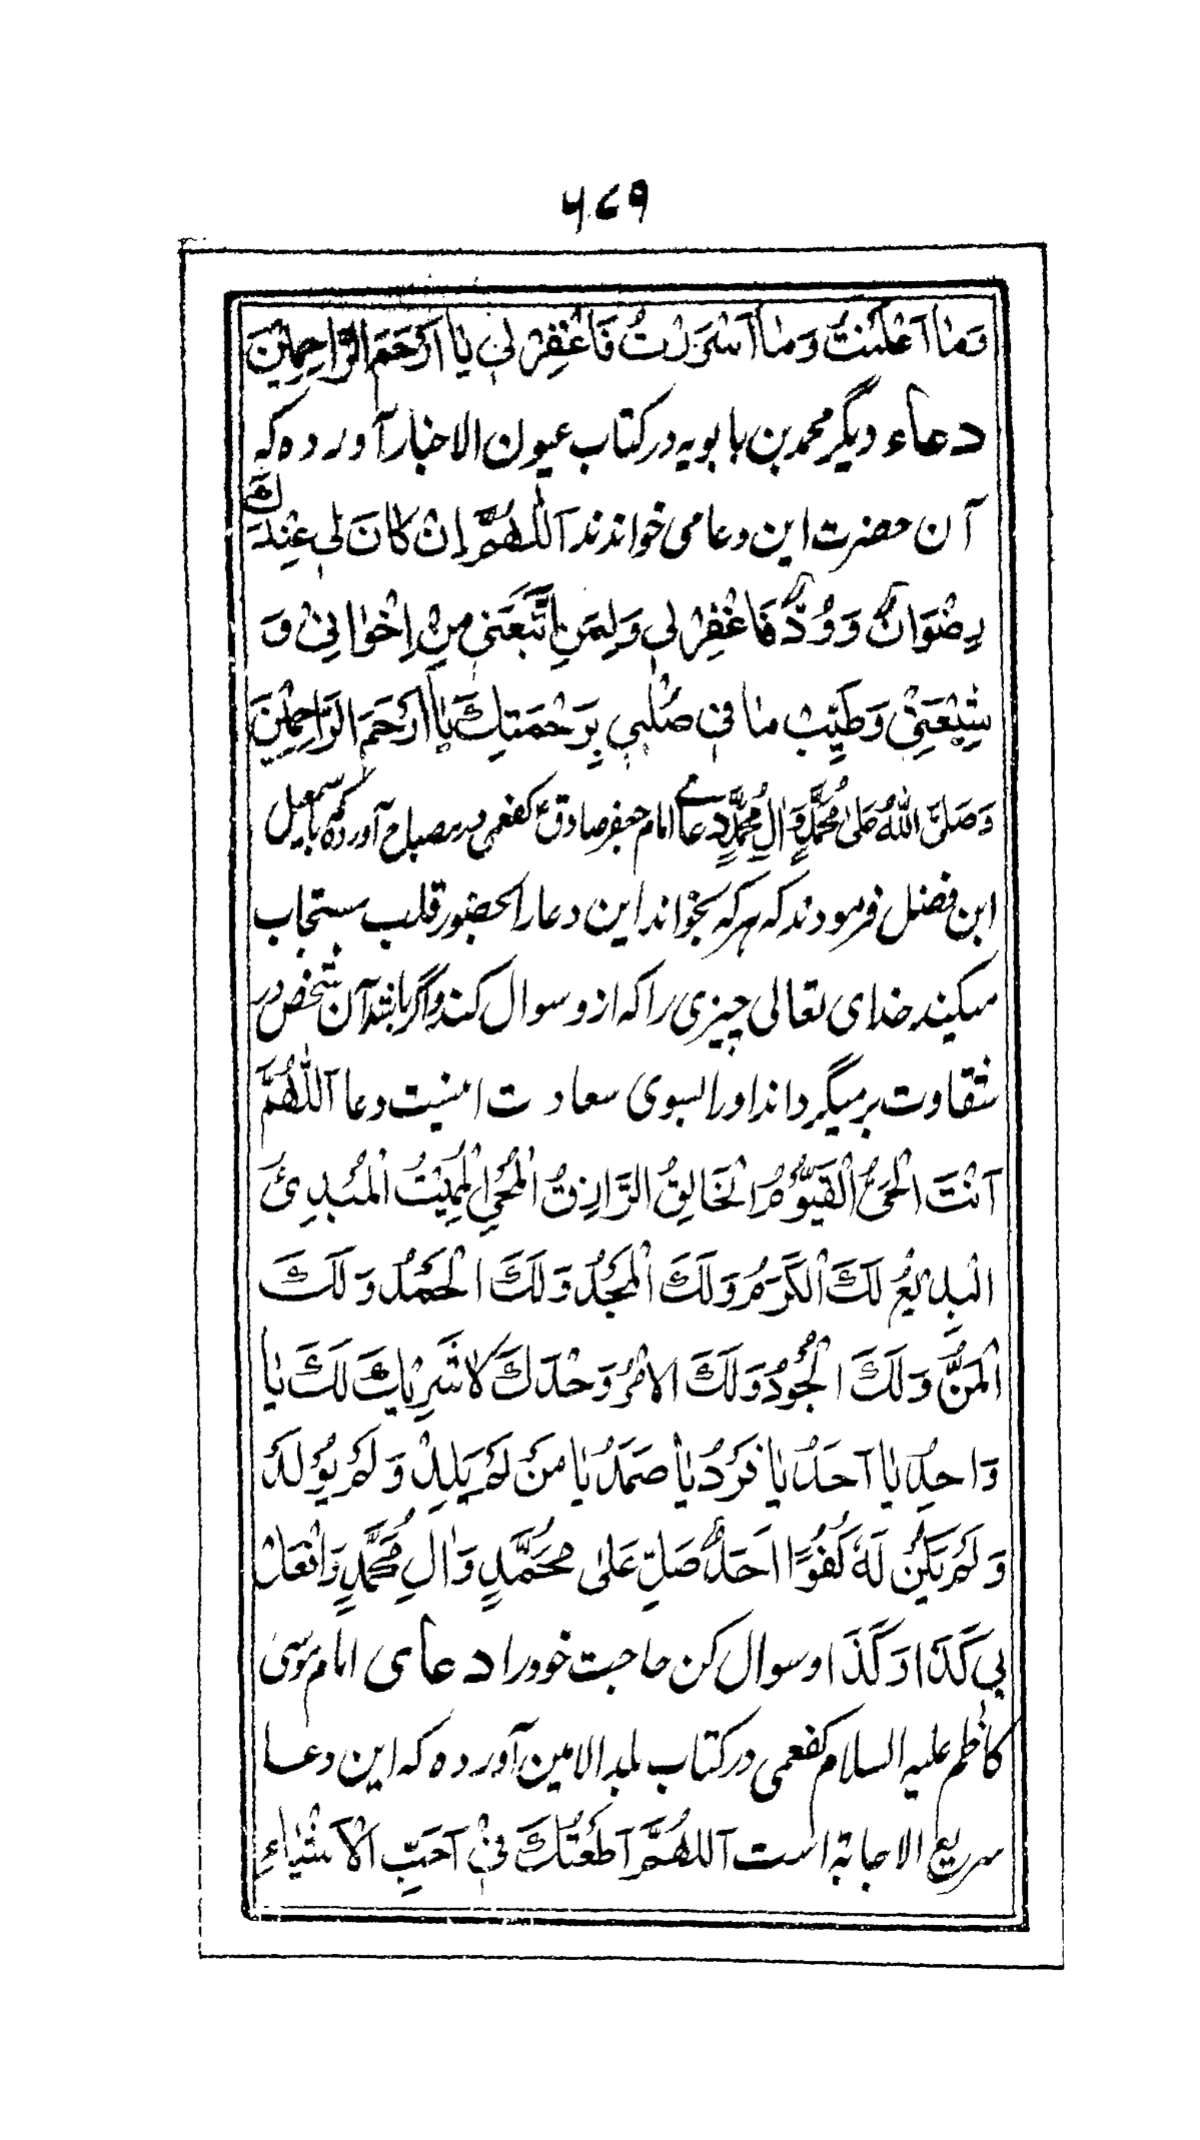 ۵۷۹
وَمٰا اَعْلَنْتُ وَمٰا اَسْرَرْتُ فَاغْفِرْ لِى يٰا اَرْحَمَ الرّٰاحِمِيْنَ
دعاء ديگر محمد بن بابويه در كتاب عيون الاخبار آورده كه
آن حضرت اين دعا مى خواندند اَللّٰهُمَّ اِنْ كٰانَ لِى عِنْدَكَ
رِضْوَانٌ وَوُدٌّ فَاغْفِرْ لِى وَلِمَنِ اتَّبَعَنِى مِنْ اِخْوٰانِىْ وَ
شِيْعَتِىْ وَطَيِّبْ مٰا فِى صُلْبِى بِرَحْمَتِكَ يٰا اَرْحَمَ الرَّاحِمِيْنَ
وَصَلَّى اللّٰهُ عَلىٰ مُحَمَّدٍ وَاٰلِ مُحَمَّدٍ دعاے امام جعفر صادق ع كفعمى در مصباح آورده كه باسمعيل
ابن فضل فرمودند كه هر كه بخواند اين دعا را بحضور قلب مستجاب
ميكند خداى تعالى چيزى را كه از و سوال كند و اگر باشد آن شخص در
شقاوت بر ميگرداند او را بسوى سعادت اينست دعا اَللّٰهُمَّ
اَنْتَ الْحَىُّ الْقَيُّوْمُ الْخَالِقُ الرَّازِقُ الْمُحْيِ الْمُمِيْتُ الْمُبْدِئُ
الْبَدِيْعُ لَكَ الْكَرَمُ وَلَكَ الْمَجْدُ وَلَكَ الْحَمْدُ وَلَكَ
الْمَنُّ وَلَكَ الْجُوْدُ وَلَكَ الْاَمْرُ وَحْدَكَ لَا شَرِيْكَ لَكَ يٰا
وَاحِدُ يٰا اَحَدُ يٰا فَرْدُ يٰا صَمَدُ يٰا مَنْ لَمْ يَلِدْ وَلَمْ يُوْلَدْ
وَلَمْ يَكُنْ لَهُ كُفُوًا اَحَدٌ صَلِّ عَلىٰ مُحَمَّدٍ وَاٰلِ مُحَمَّدٍ وَافْعَلْ
بِي كَذَا وَكَذَا و سوال كن حاجت خود را دعاى امام موسى
كاظم عليه السلام كفعمى در كتاب بلد الامين آورده كه اين دعا
سريع الاجابة است اَللّٰهُمَّ اَطَعْتُكَ فِىْ اَحَبِّ الْاَشْيٰاءِ